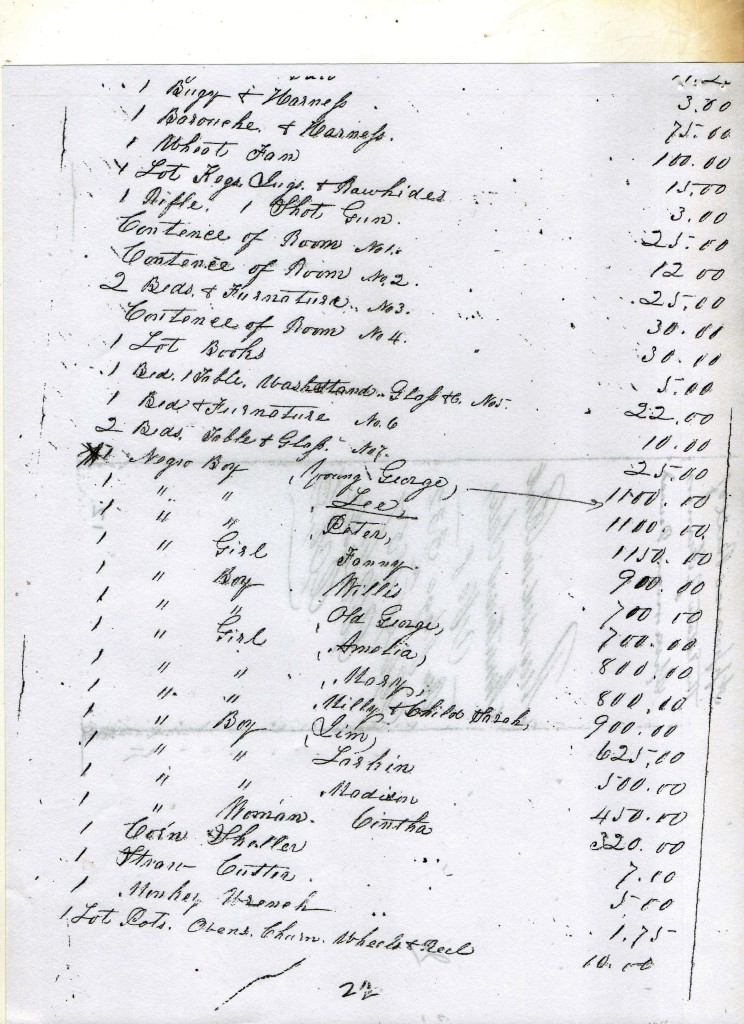 3.00
1 Bugy & Harness 75.00
1 Barouche & Harness. 100.00
1 Wheat Fan 15.00
1 Lot Kegs Jugs & Rawhides 3.00
1 Rifle. 1 Shot Gun. 25.00
Contence of Room No 1. 12 00
Contence of Room No 2. 25.00
2 Beds & Furnature No 3. 30.00
Contence of Room No 4. 30.00
1 Lot Books 5.00
1 Bed. 1 Table. Washstand. Glass &c. No 5. 22.00
1 Bed & Furnature No. 6 10.00
2 Beds. Table & Glass. No 7. 25.00
1 Negro Boy (young George, 1100.00
1 " " Lee, 1100.00
1 " " Peter, 1150.00
1 " Girl Fanny. 900.00
1 " Boy Willis 700 00
1 " " Old George, 700.00
1 " Girl Amelia, 800.00
1 " " Mary, 800.00
1 " " Milly & Child 900.00
1 " Boy Jim, 625.00
1 " " Larkin 500.00
1 " " Madison 450.00
1 " Woman. Cintha 320.00
1 Corn Sheller 7.00
1 Straw Cutter. 5 00
1 Monkey Wrench 1.75
1 Lot Pots. Ovens. Churn. Wheels & Reel 10.00